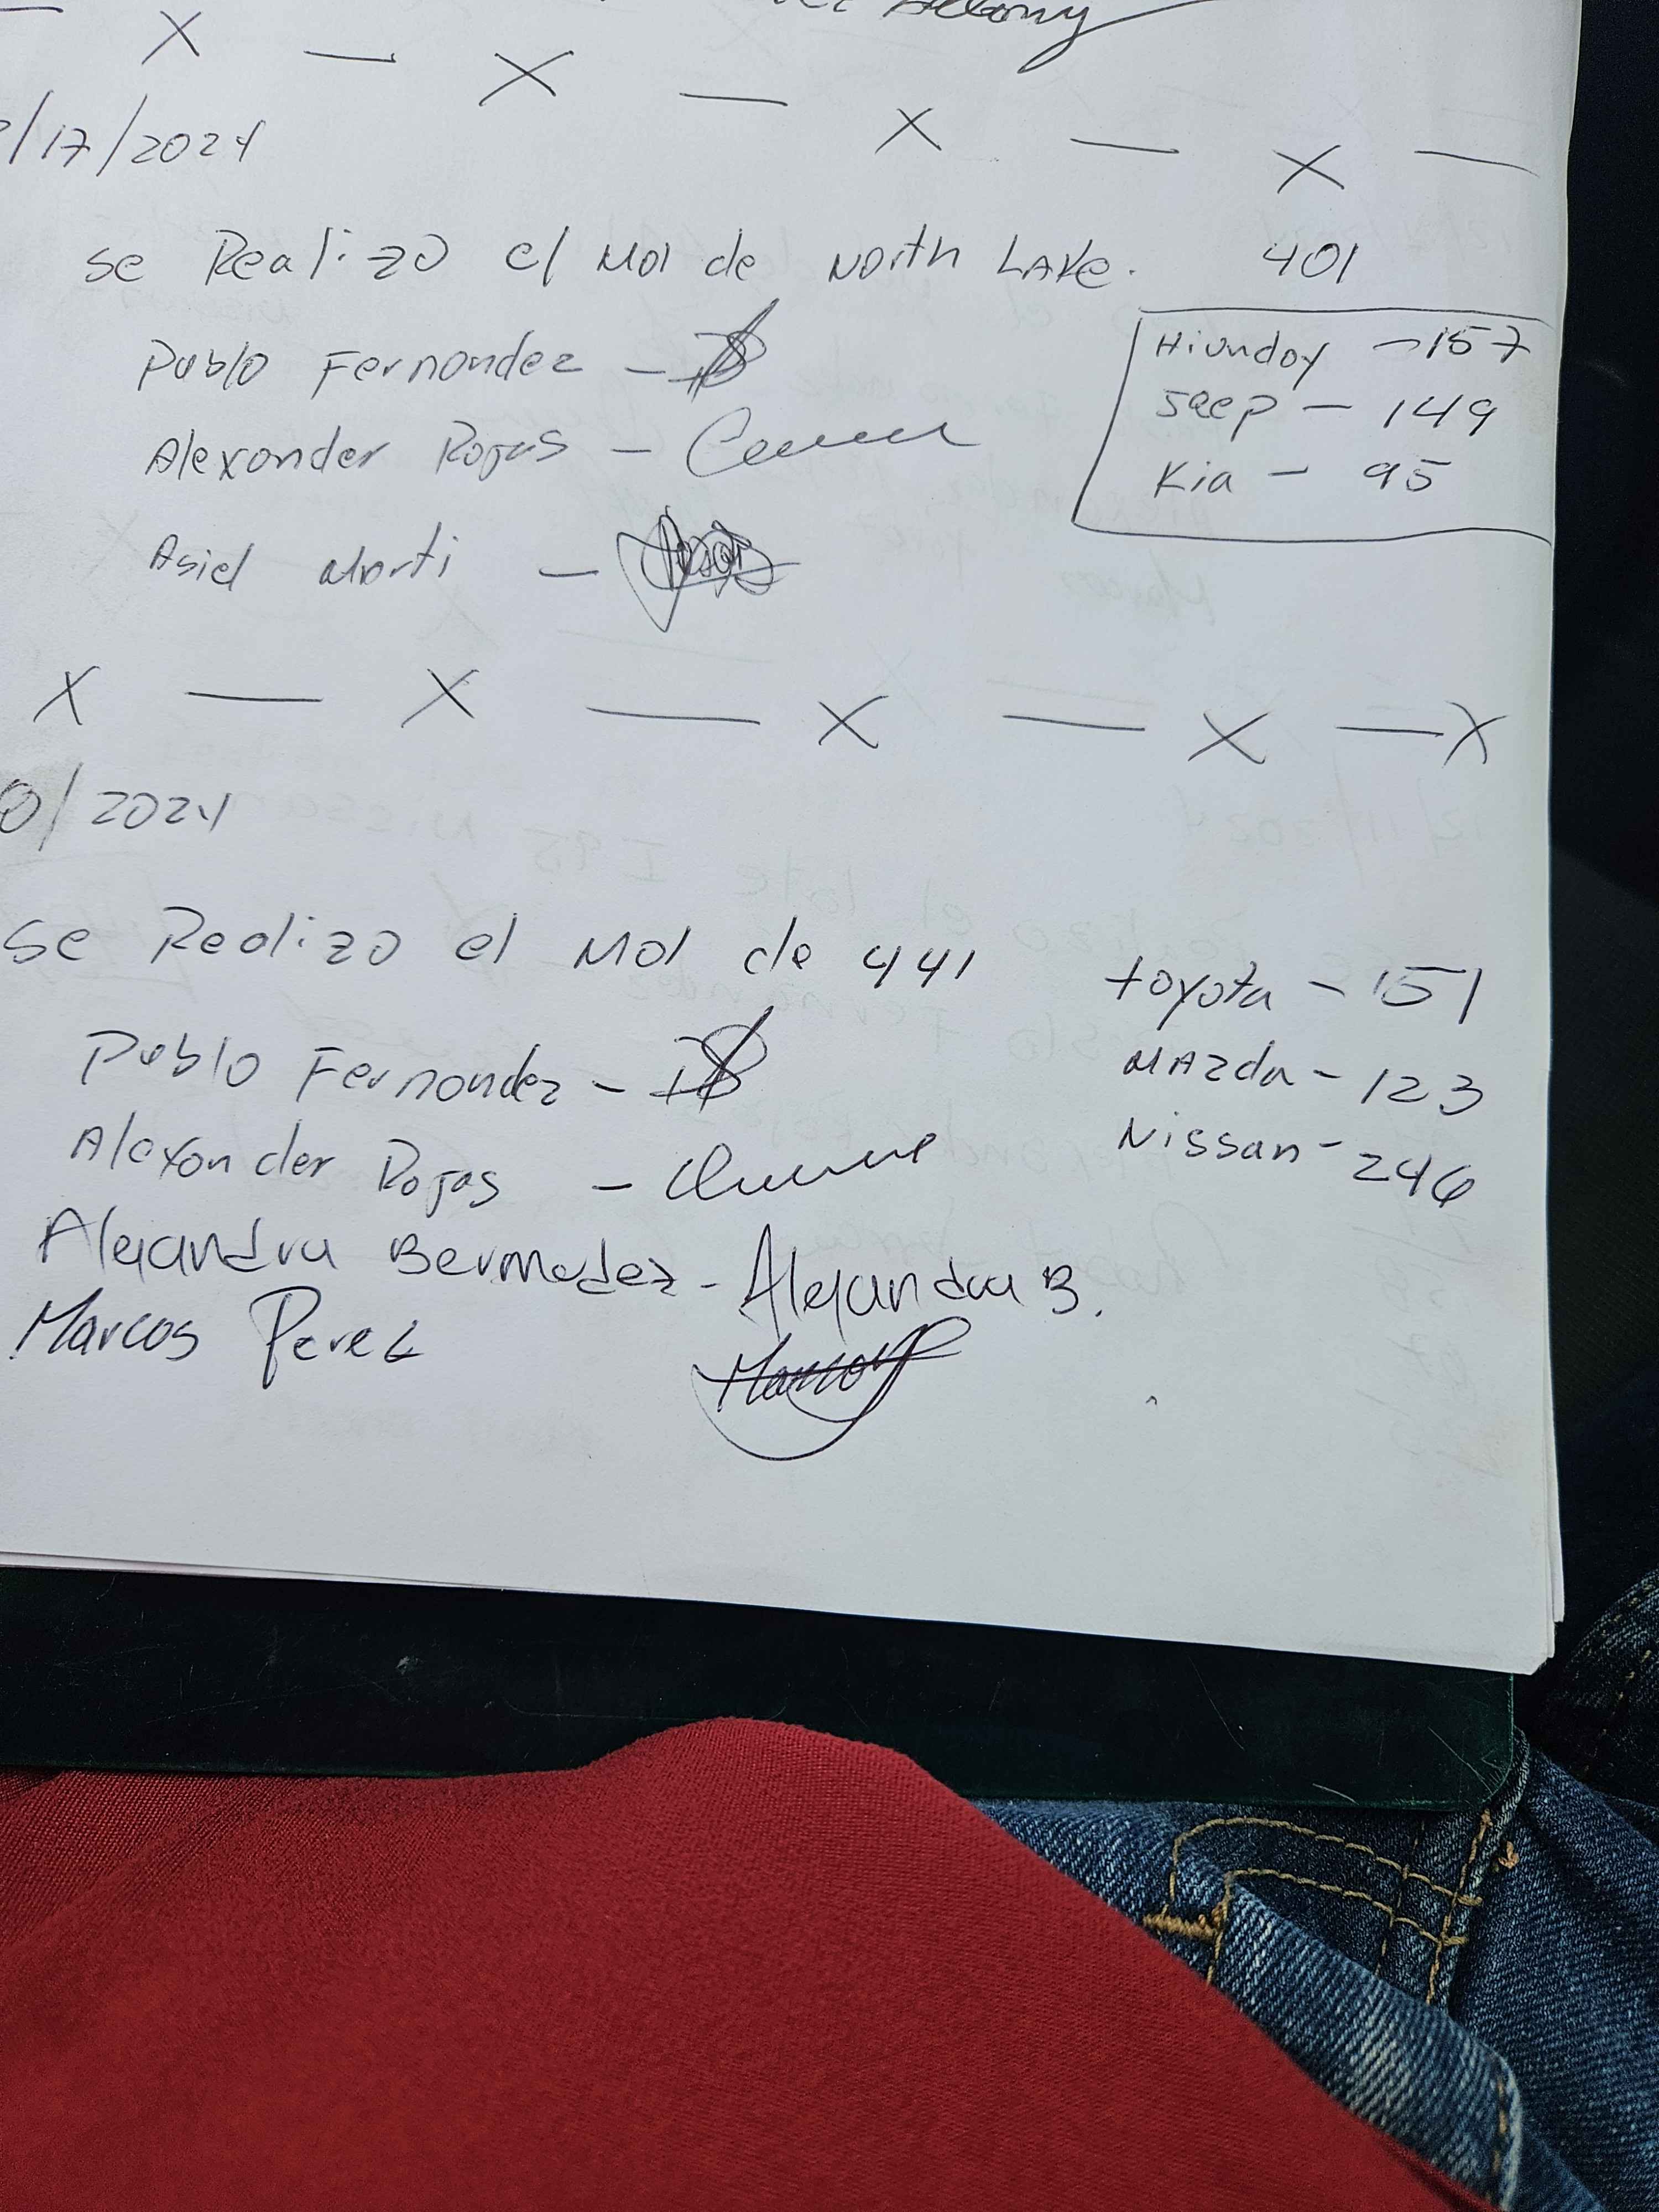 X — X — X — X —
/17/2024
Se Realizo el Mol de North Lake. 401
Pablo Fernandez -
Hiunday - 157
Jeep - 149
Alexander Rojas -
Kia - 95
Asiel Marti -
X — X — X — X — X
0/2024
Se Realizo el Mol de 441
toyota - 151
Pablo Fernandez -
Mazda - 123
Alexander Rojas -
Nissan - 246
Alejandra Bermudez - Alejandra B.
Marcos Perez